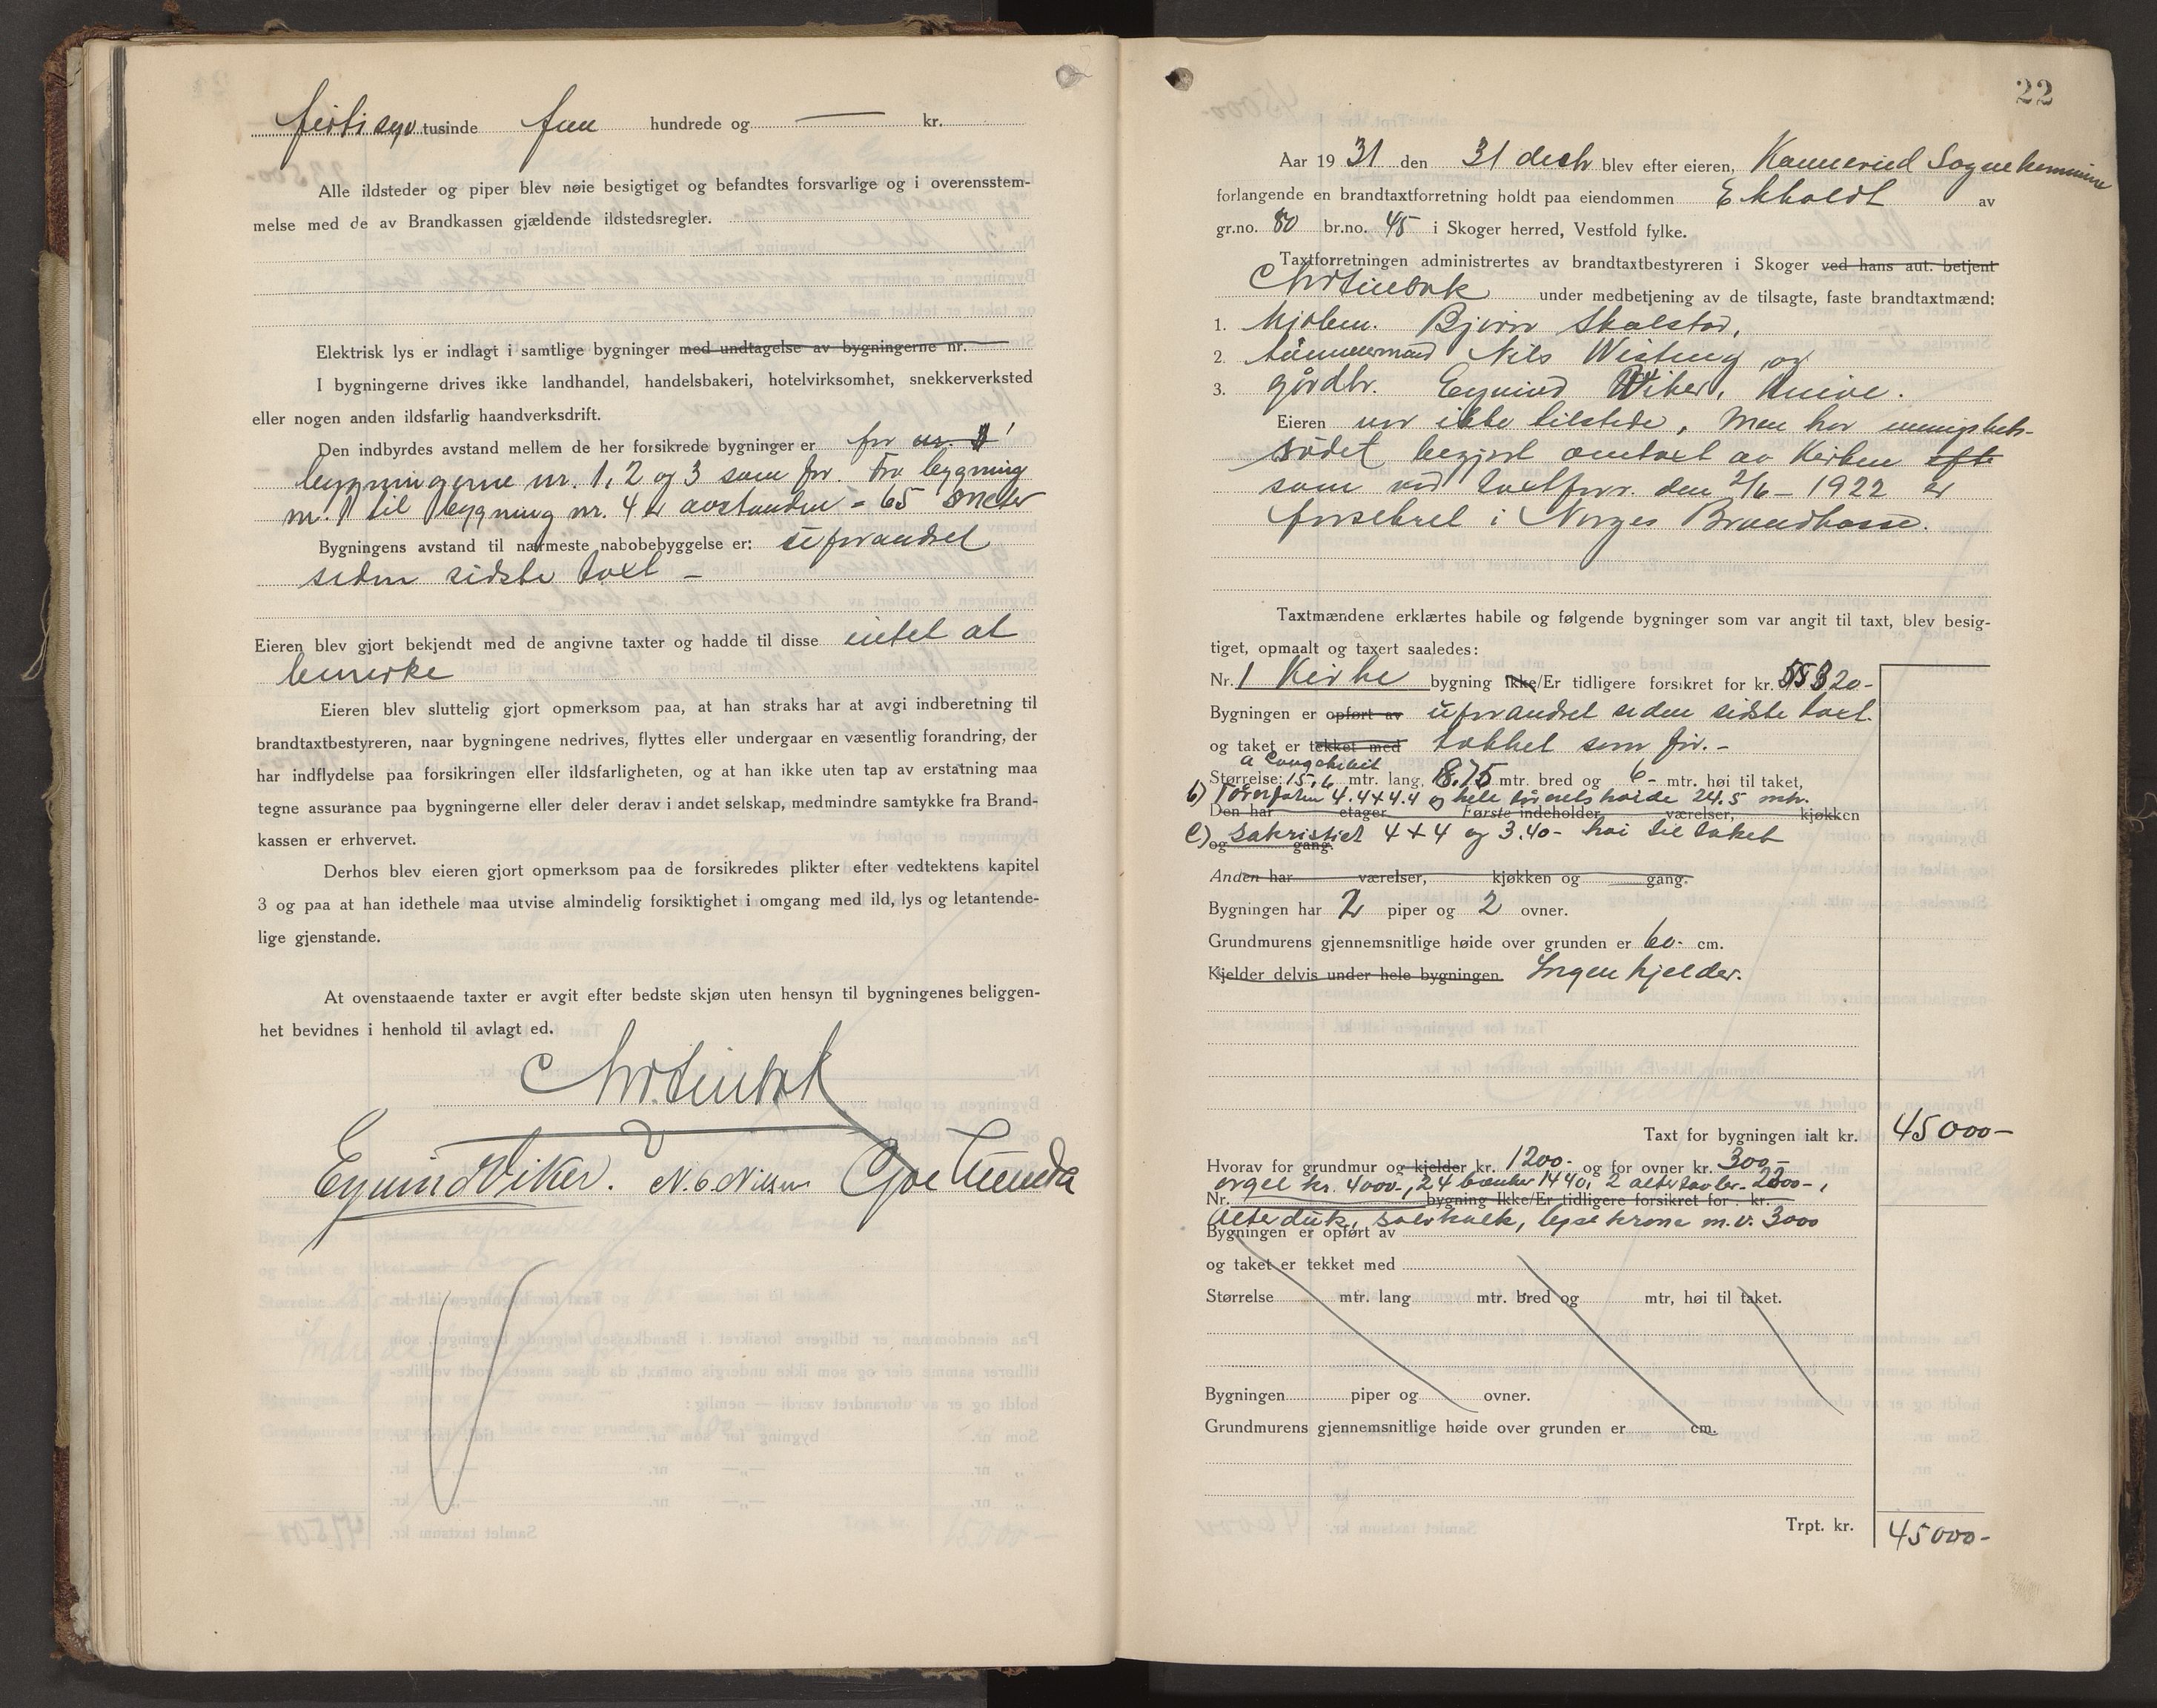 førtisyv tusinde fem hundrede og — kr.
Alle ildsteder og piper blev nøie besigtiget og befandtes forsvarlige og i overensstem-
melse med de av Brandkassen gjældende ildstedsregler.
Elektrisk lys er indlagt i samtlige bygninger med undtagelse av bygningerne nr.
I bygningerne drives ikke landhandel, handelsbakeri, hotelvirksomhet, snekkerverksted
eller nogen anden ildsfarlig haandverksdrift.
Den indbyrdes avstand mellem de her forsikrede bygninger er for nr. 1
bygningerne nr. 1, 2 og 3 som før. Fra bygning
nr. 1 til bygning nr. 4 er avstanden = 65 meter
Bygningens avstand til nærmeste nabobebyggelse er: uforandret
siden sidste taxt -
Eieren blev gjort bekjendt med de angivne taxter og hadde til disse intet at
bemerke
Eieren blev sluttelig gjort opmerksom paa, at han straks har at avgi indberetning til
brandtaxtbestyreren, naar bygningene nedrives, flyttes eller undergaar en væsentlig forandring, der
har indflydelse paa forsikringen eller ildsfarligheten, og at han ikke uten tap av erstatning maa
tegne assurance paa bygningerne eller deler derav i andet selskap, medmindre samtykke fra Brand-
kassen er erhvervet.
Derhos blev eieren gjort opmerksom paa de forsikredes plikter efter vedtektens kapitel
3 og paa at han idethele maa utvise almindelig forsiktighet i omgang med ild, lys og letantende-
lige gjenstande.
At ovenstaaende taxter er avgit efter bedste skjøn uten hensyn til bygningenes beliggen-
het bevidnes i henhold til avlagt ed.
Eyvind Viker. N. O. Nilsen
22
Aar 1931 den 31 desbr blev efter eieren, Konnerud Sognekommune
forlangende en brandtaxtforretning holdt paa eiendommen Ekholdt av
gr.no. 80 br.no. 45 i Skoger herred, Vestfold fylke.
Taxtforretningen administrertes av brandtaxtbestyreren i Skoger ved hans aut. betjent
under medbetjening av de tilsagte, faste brandtaxtmænd:
1. Bjørn Skalstad,
2. tømmermand Nils Wisting og
3. gårdbr. Eyvind Wiker,
Eieren var ikke tilstede, men har menighets-
rådet begjært omtaxt av Kirken efte
som ved taxtforr. den 2/6 - 1922 er
forsikret i Norges Brandkasse.
Taxtmændene erklærtes habile og følgende bygninger som var angit til taxt, blev besig-
tiget, opmaalt og taxert saaledes:
Nr. 1 Kirke bygning Ikke/Er tidligere forsikret for kr. 55320-
Bygningen er opført av uforandret siden sidste taxt.
og taket er tekket med takket som før. -
a Langskibet
Størrelse: 15,6 mtr. lang, 8.75 mtr. bred og 6- mtr. høi til taket,
b) Tårnfoten 4.4 + 4.4 og hele tårnets høide 24.5 mtr.
Den har etager Første indeholder værelser, kjøkken
c) Sakristiet 4 + 4 og 3.40- høi til taket
og gang.
Anden har værelser, kjøkken og gang.
Bygningen har 2 piper og 2 ovner.
Grundmurens gjennemsnitlige høide over grunden er 60- cm.
Kjelder delvis under hele bygningen. Ingen kjelder.
Taxt for bygningen ialt kr. 45000-
Hvorav for grundmur og kjelder kr. 1200- og for ovner kr. 300-
orgel kr. 4000-, 24 bænker 1440, 2 altertavler- 2200-,
Nr. bygning Ikke/Er tidligere forsikret for kr.
Alterduk, sølvkalk, lysekrone m.v. 3000
Bygningen er opført av
og taket er tekket med
Størrelse mtr. lang mtr. bred og mtr, høi til taket.
Bygningen piper og ovner.
Grundmurens gjennemsnitlige høide over grunden er cm.
Trpt. kr. 45000-